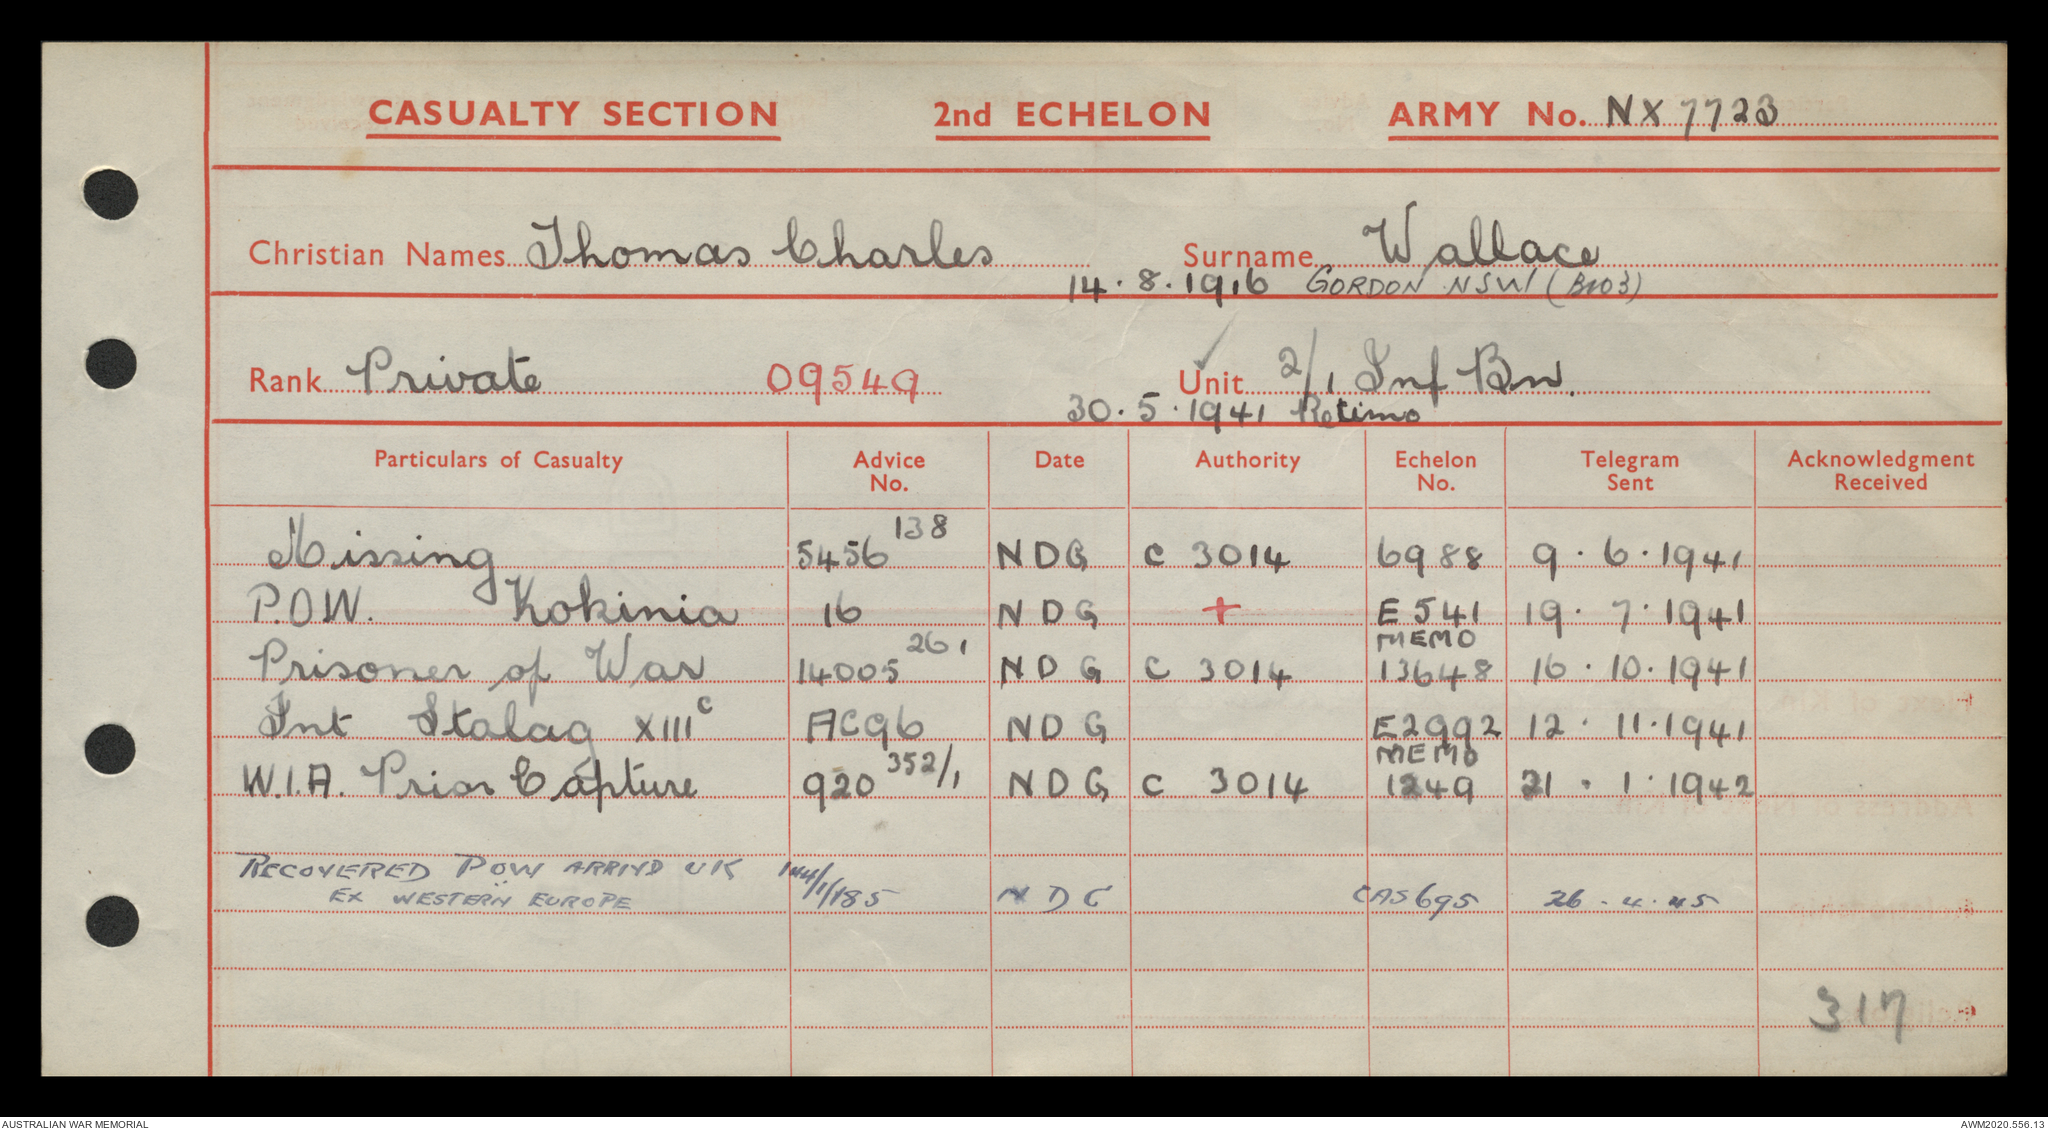 CASUALTY SECTION 2nd ECHELON ARMY No. NX 7723
Christian Names Thomas Charles Surname Wallace
14.8.1916 GORDON NSW (B103)
Rank Private 09549 Unit 2/1 Inf Bn.
30.5.1941 Retimo
Particulars of Casualty Advice No. Date Authority Echelon No. Telegram Sent Acknowledgment Received
Missing 5456 138 NDG C 3014 6988 9.6.1941
P.O.W. Kokinia 16 NDG + E 541 19.7.1941
MEMO
Prisoner of War 14005 261 NDG C 3014 13648 16.10.1941
Int Stalag XIIIc AC96 NDG E2992 12.11.1941
MEMO
W.I.A. Prior Capture 920 352/1 NDG C 3014 1249 21.1.1942
RECOVERED POW ARRIVD UK 144/1/185
EX WESTERN EUROPE NDG CAS695 26.4.45
317
AUSTRALIAN WAR MEMORIAL AWM2020.556.13